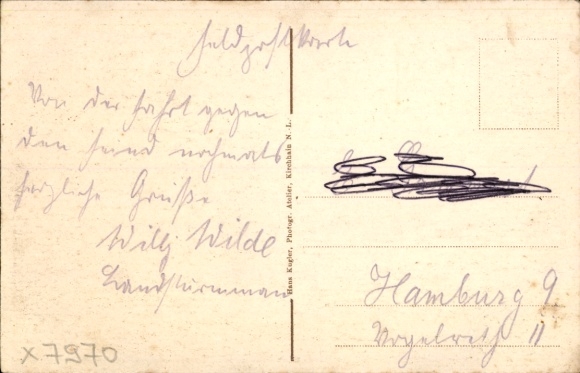 Feldpostkarte
Von der Fahrt gegen
den Feind nochmals
herzliche Grüße
Willy Wilde
Landsturmmann
Hans Kugler, Photogr. Atelier, Kirchhain N.-L.
Hamburg 9
11
x 7970